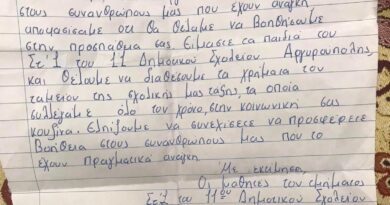 στους συνανθρώπους μας που έχουν ανάγκη
αποφασίσαμε ότι θα θέλαμε να βοηθήσουμε
στην προσπάθεια σας. Είμαστε τα παιδιά του
Στ'1 του 11 Δημοτικού Σχολείου Αργυρούπολης,
και θέλουμε να διαθέσουμε τα χρήματα του
ταμείου της σχολικής μας τάξης, τα οποία
συλλέγαμε όλο τον χρόνο, στην κοινωνική σας
κουζίνα. Ελπίζουμε να συνεχίσετε να προσφέρετε
βοήθεια στους συνανθρώπους μας που το
έχουν πραγματικά ανάγκη
Με εκτίμηση,
Οι μαθητές του τμήματος
Στ'1 του 11ου Δημοτικού Σχολείου